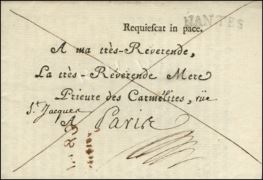 Requiescat in pace.
NANTES
A ma très-Reverende,
La très-Reverende Mere
Prieure des Carmélites, rüe
St. Jacques
A Paris